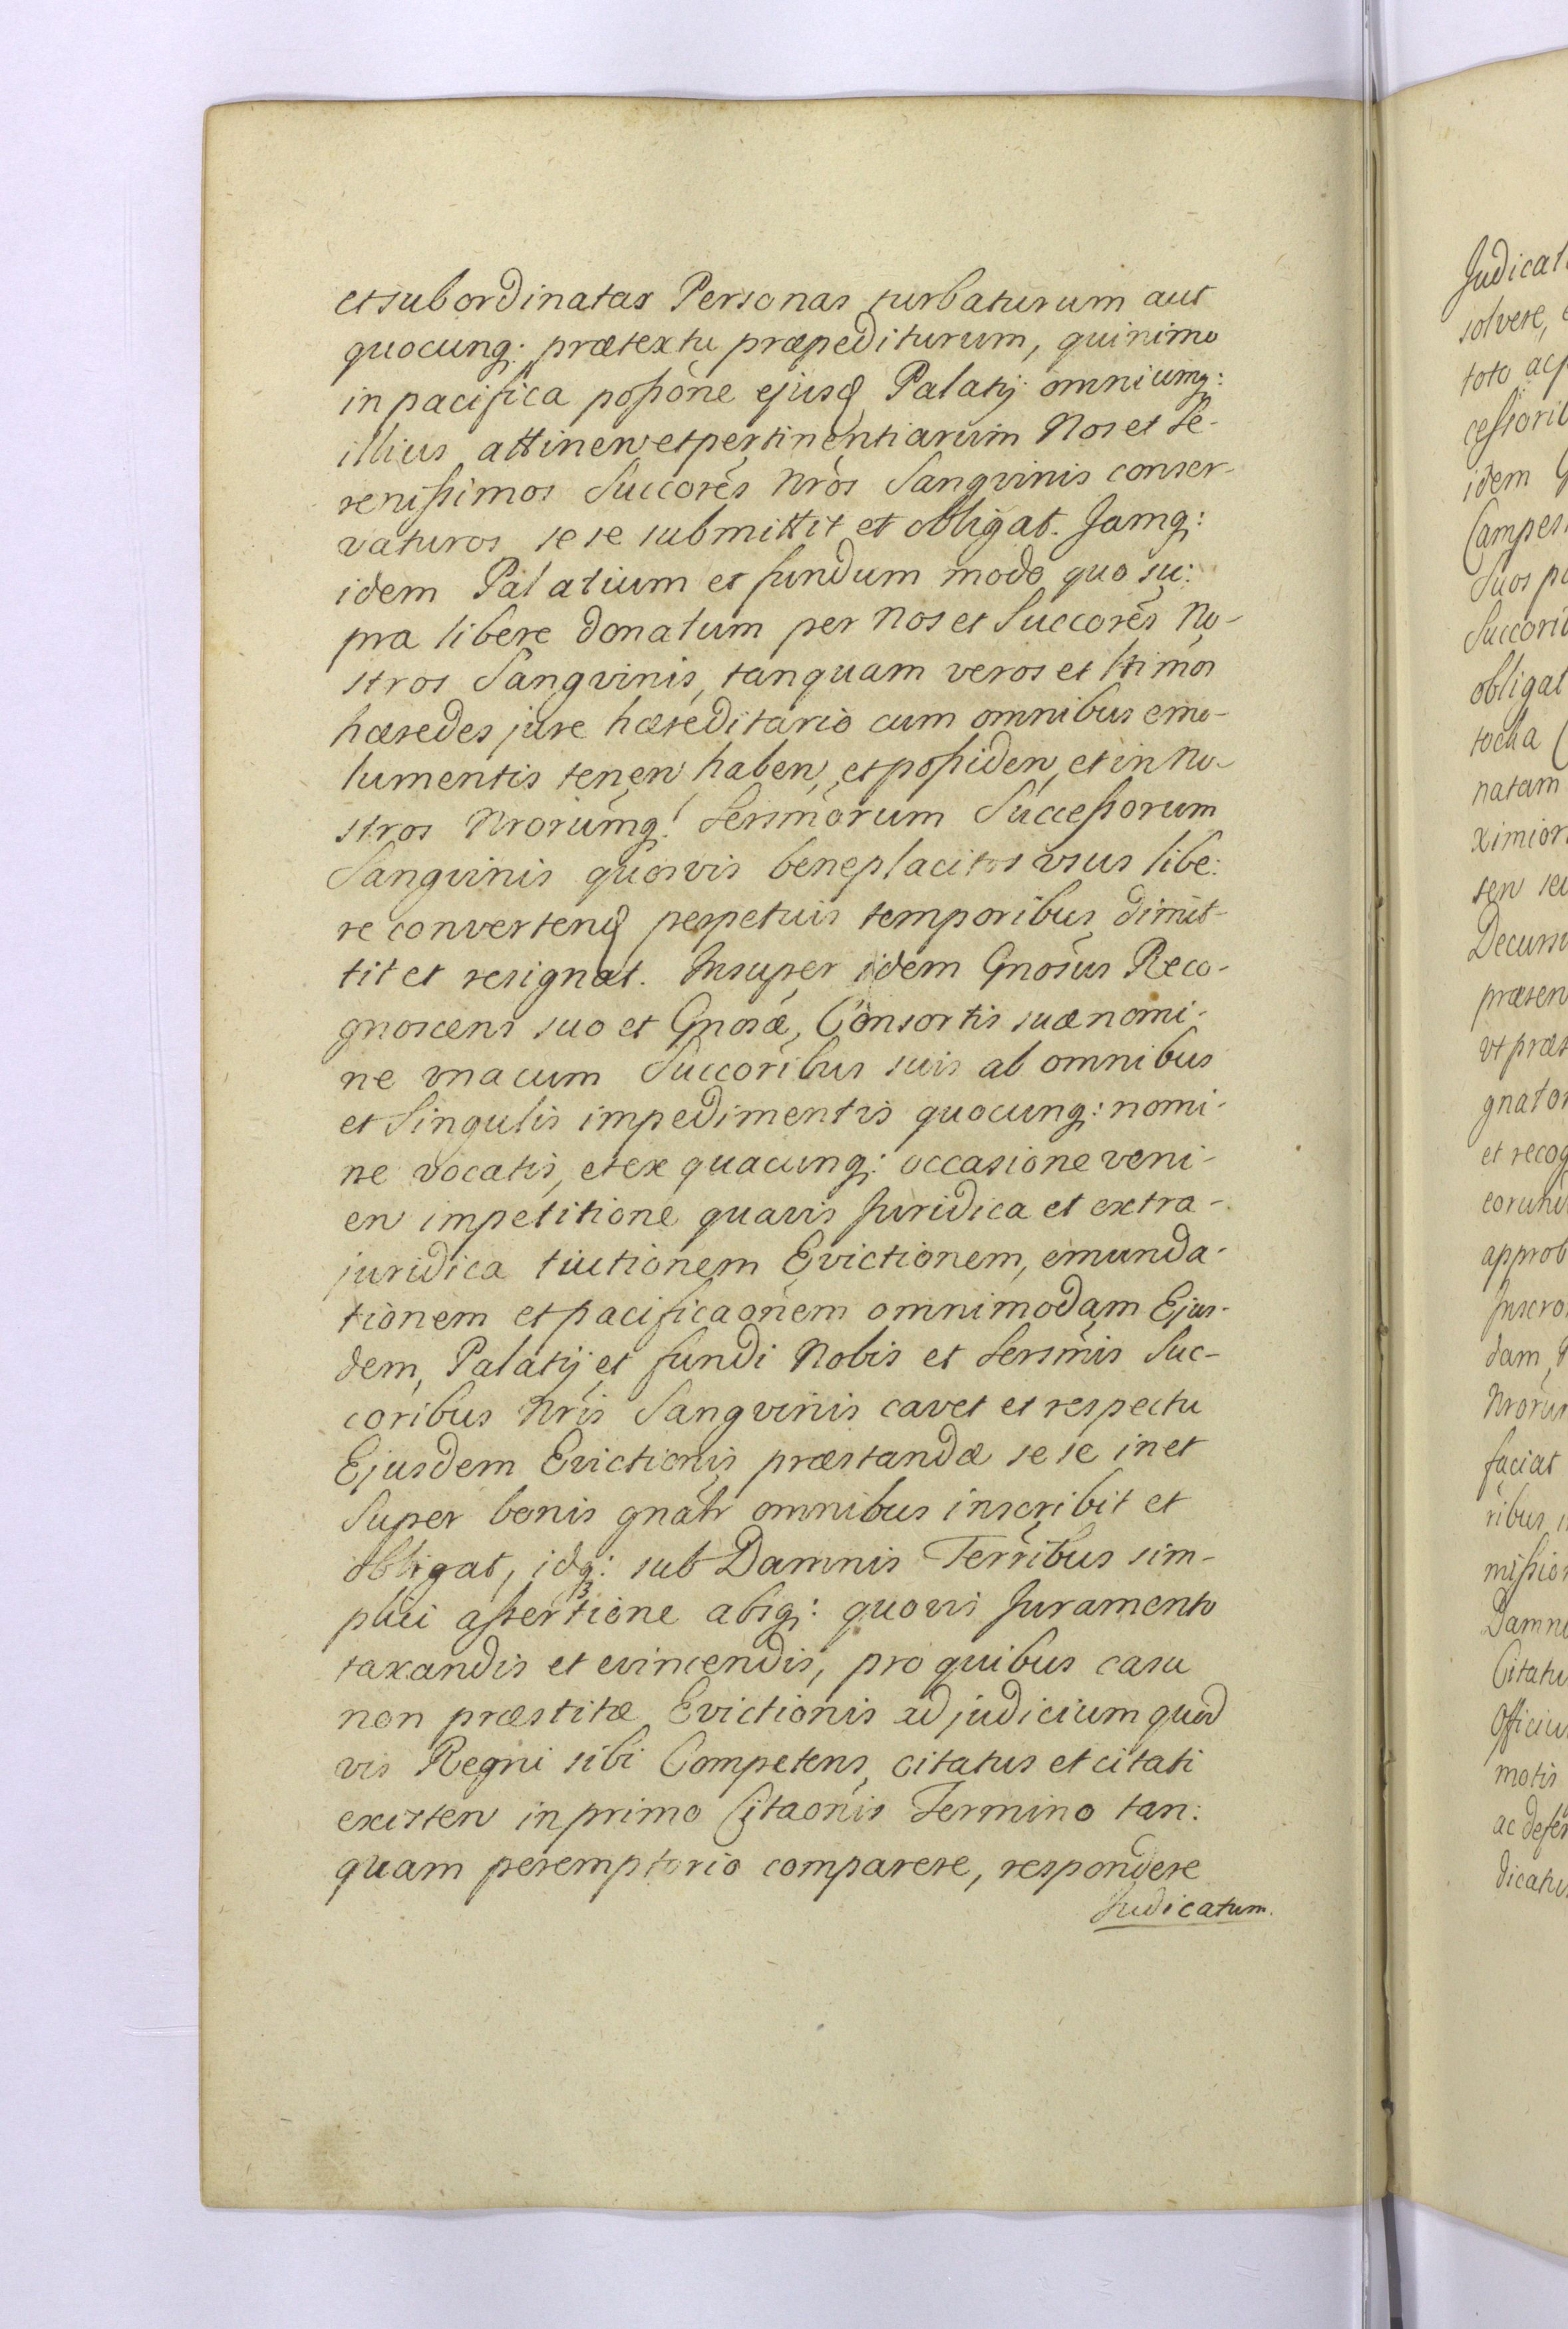 et subordinatas Personas turbaturum aut
quocunq: prætextu præpediturum, quinimo
in pacifica possõne ejusd Palatij omniumq:
illius attinen et pertinentiarum Nos et Se-
renissimos Succorẽs Nrõs Sangvinis conser-
vaturos se se submittit et obligat. Jamq:
idem Palatium et fundum modo quo su:
pra libere donatum per Nos et Succorẽs No-
stros Sangvinis, tanquam veros et ltimos
hæredes jure hæreditario cum omnibus emo-
lumentis tenen, haben, et possiden, et in No-
stros Nrorumq! Sersmorum Successorum
Sangvinis quosvis beneplacitos usus libe:
re convertend perpetuis temporibus dimit-
tit et resignat. Insuper idem Gnosus Reco-
gnoscens suo et Gnosæ, Consortis suæ nomi-
ne vnacum Succoribus suis ab omnibus
et Singulis impedimentis quocunq: nomi-
ne vocatis, et ex quacunq: occasione veni-
en impetitione quavis Juridica et extra-
juridica tuitionem Evictionem, emunda-
tionem et pacificaonem omnimodam Ejus-
dem, Palatij et fundi Nobis et Sersmis Suc-
coribus Nris Sangvinis cavet et respectu
Ejusdem Evictionis præstandæ se se in et
Super bonis gnatr omnibus inscribit et
obligat, idq: sub Damnis Terribus sim-
plici assertione absq: quovis Juramento
taxandis et evincendis, pro quibus casu
non præstitæ Evictionis ad judicium quod
vis Regni sibi Competens, citatus et citati
existen in primo Citaonis Termino tan:
quam peremptorio comparere, respondere
Judicatum.
Judicat
solvere,
toto
idem
Suos
obligat
natam
Decurs
præsen
et recog
approb
dam
faciat
ribus
Damn
Citatu
Officiu
motis
ac defe